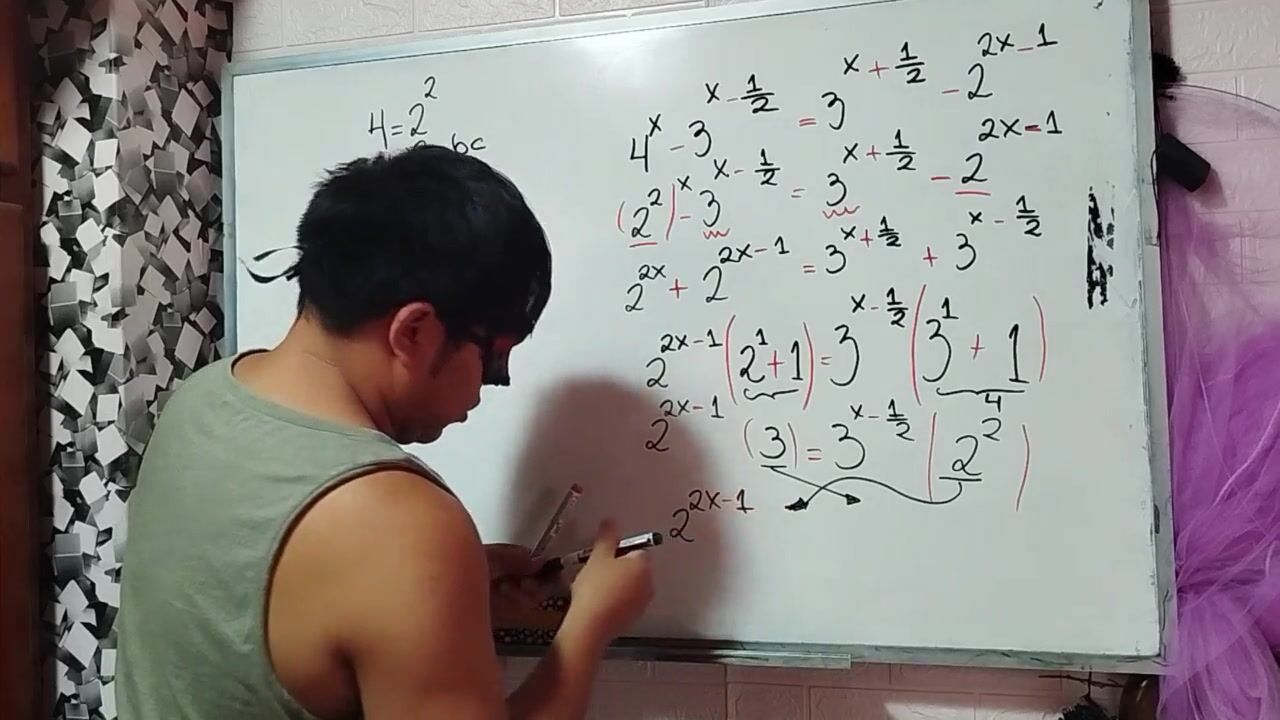 4=2^2
bc
4^x - 3^{x-1/2} = 3^{x+1/2} - 2^{2x-1}
(2^2)^x - 3^{x-1/2} = 3^{x+1/2} - 2^{2x-1}
2^{2x} + 2^{2x-1} = 3^{x+1/2} + 3^{x-1/2}
2^{2x-1}(2^1+1) = 3^{x-1/2}(3^1+1)
4
2^{2x-1}(3) = 3^{x-1/2}(2^2)
2^{2x-1}